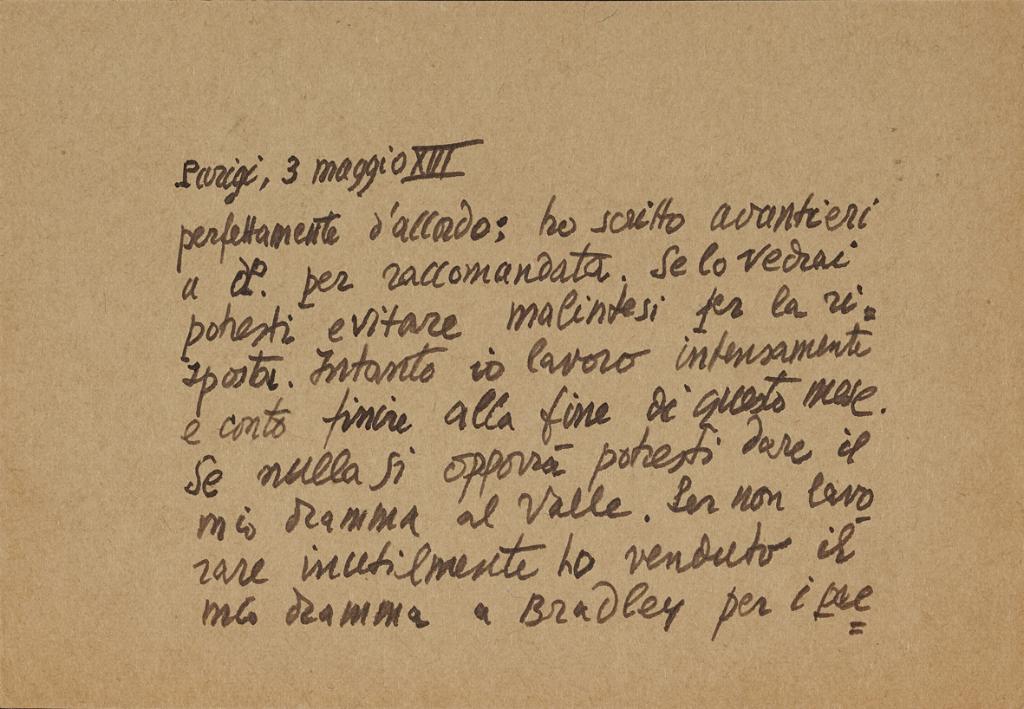 Parigi, 3 maggio XIII
perfettamente d'accordo; ho scritto avantieri
a P. per raccomandata. Se lo vedrai
potresti evitare malintesi per la ri=
sposta. Intanto io lavoro intensamente
e conto finire alla fine di questo mese.
Se nulla si opporrà potresti dare il
mio dramma al Valle. Per non lavo
rare inutilmente ho venduto il
mio dramma a Bradley per i pae
=